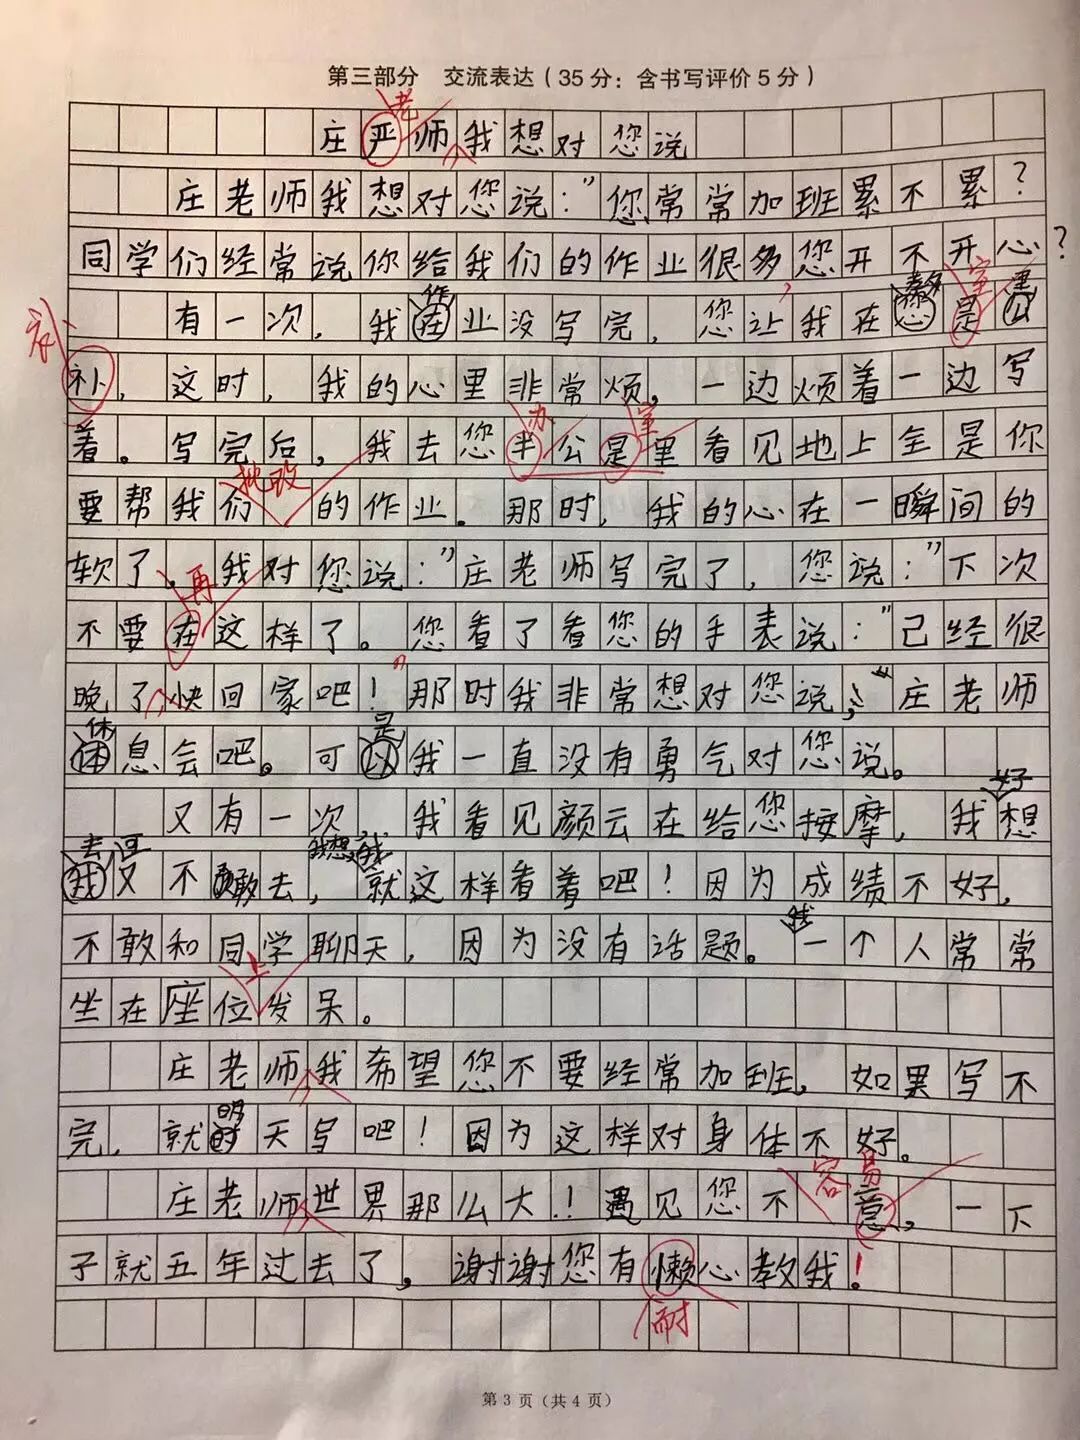 第三部分 交流表达（35分：含书写评价5分）
老
庄严师我想对您说
庄老师我想对您说：”您常常加班累不累？
同学们经常说你给我们的作业很多您开不开心？
作 教 室 里
有一次，我在业没写完，您让我在您是公
补，这时，我的心里非常烦，一边烦着一边写
办 室
着。写完后，我去您半公是里看见地上全是你
批改
要帮我们的作业。那时，我的心在一瞬间的
软了，我对您说：”庄老师写完了，您说：”下次
再
不要在这样了。您看了看您的手表说：“已经很
晚了快回家吧！”那时我非常想对您说，庄老师
休 是
体息会吧。可以我一直没有勇气对您说。
好
又有一次 我看见颜云在给您按摩，我想
去可 我想 我
我又不敢去，就这样看着吧！因为成绩不好，
我
不敢和同学聊天，因为没有话题。一个人常常
上
坐在座位发呆。
庄老师我希望您不要经常加班，如果写不
明
完，就时天写吧！因为这样对身体不好。
容易
庄老师世界那么大！遇见您不意，一下
子就五年过去了，谢谢您有懒心教我！
耐
第3页（共4页）